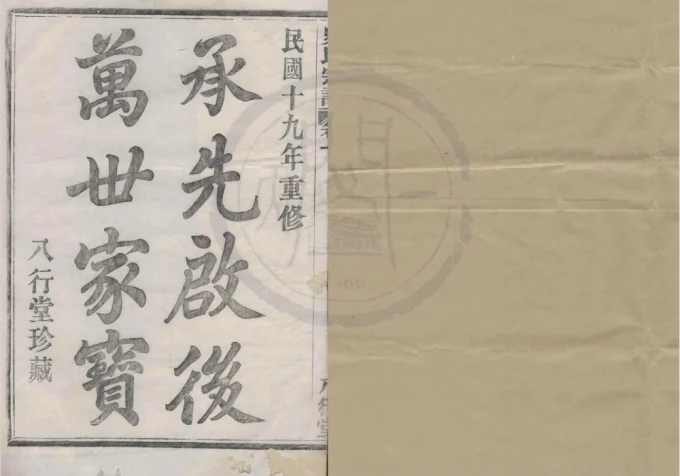 民國十九年重修
承先啟後
萬世家寶
八行堂珍藏